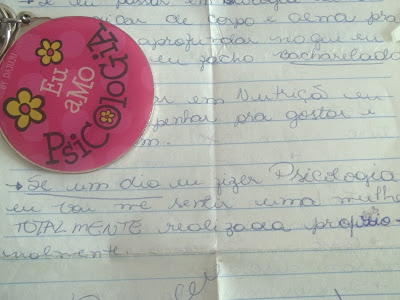 BY DAJUJU
Eu
aMo
PsicologiA
de corpo e alma pra
aprofundar no que eu
eu facho bacharelado
em Nutriçã eu
penhar pra gostar e
m.
→ Se um dia eu fizer Psicologia
eu vai me sentir uma mulher
TOTALMENTE realizada profissio-
nalmente.